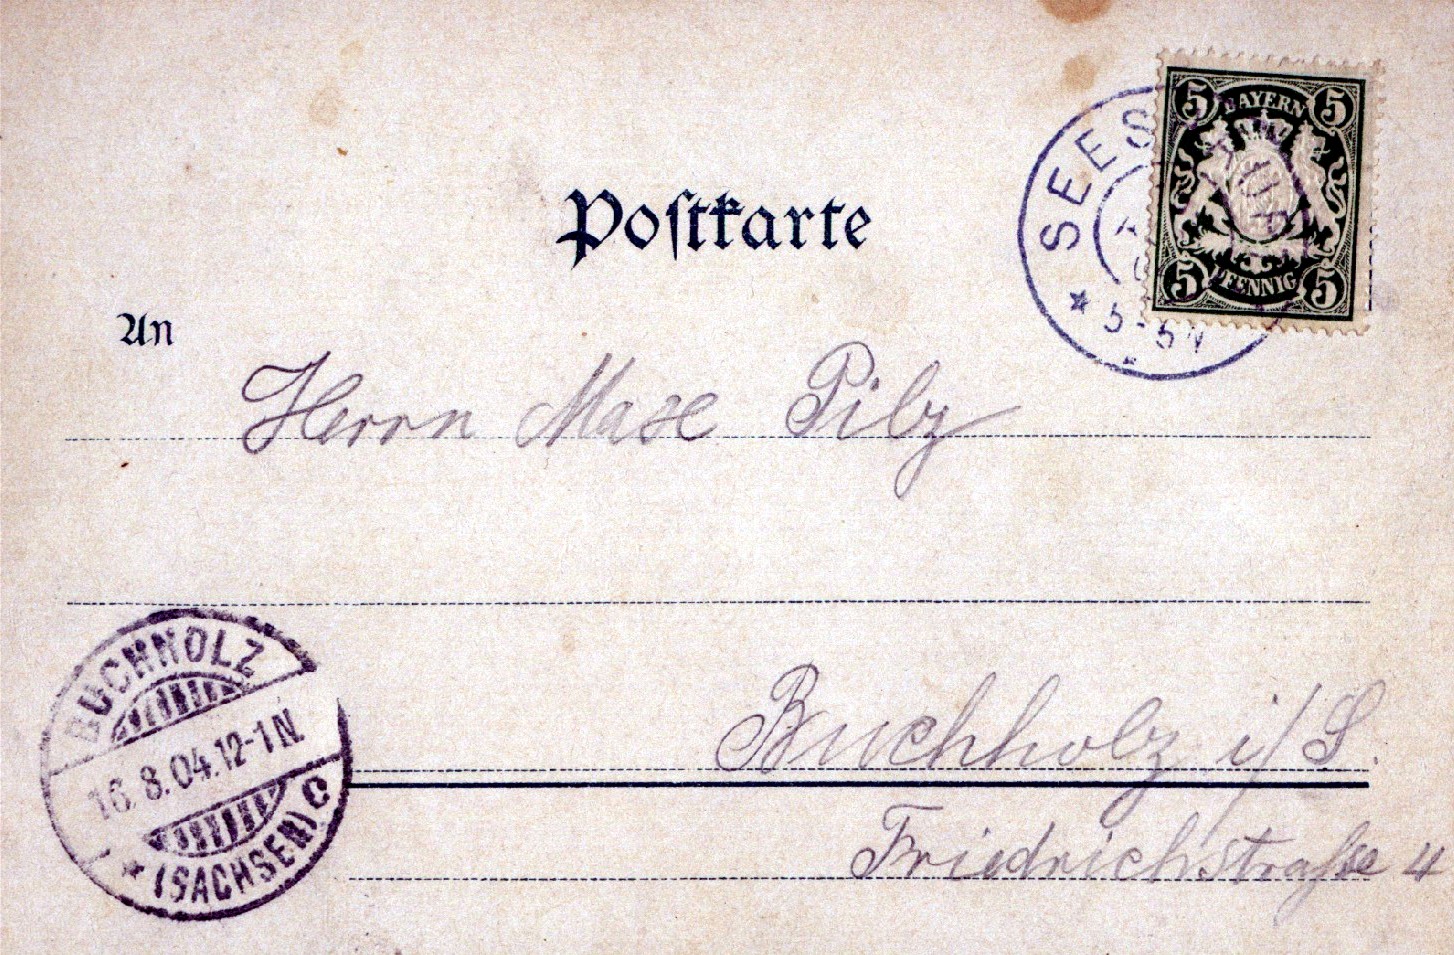 Postkarte
5 BAYERN 5
5 PFENNIG 5
SEES
5-6N
An
Herrn Maxe Pilz
BUCHHOLZ
16.8.04.12-1N.
* (SACHSEN) C
Buchholz i/S.
Friedrichstraße 4